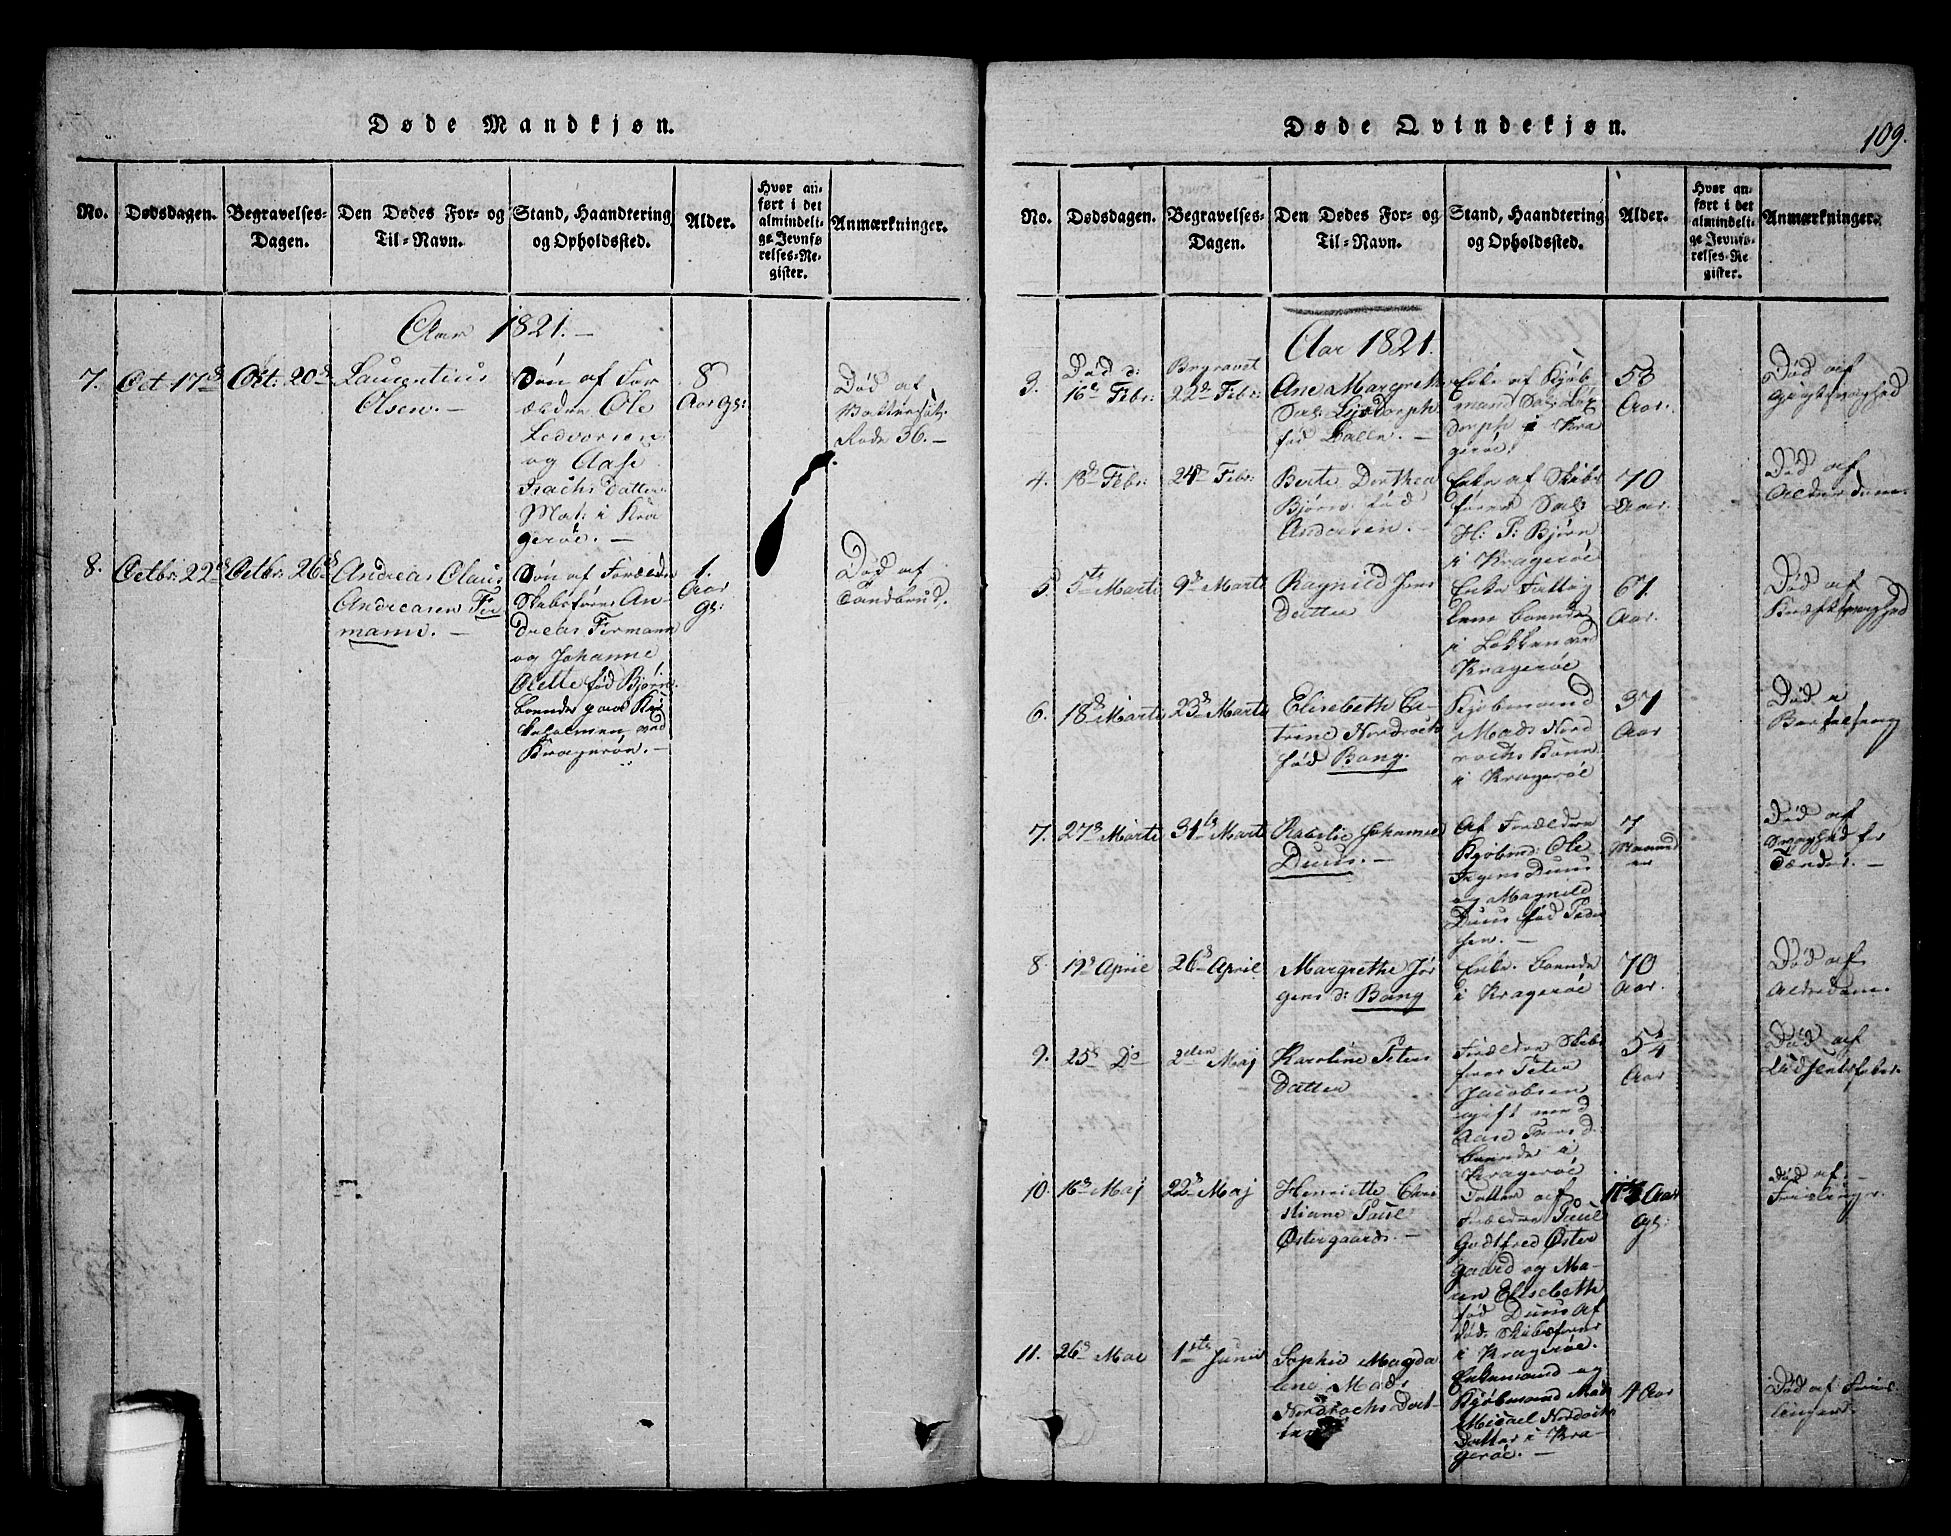 Døde Mandkjøn.
No.
Dødsdagen.
Begravelses-
Dagen.
Den Dødes For- og
Til-Navn.
Stand, Haandtering
og Opholdssted.
Alder.
Hvor an-
ført i det
almindeli-
ge Jevnfø-
relses-Re-
gister.
Anmærkninger.
Aar 1821. –
7.
Oct 17de
Oct: 20de
Laurentius
Olsen. –
Søn af For
ældre Ole
Ledvorsen
og Aase
Isachsdatter
Mat: i Kra
gerøe. –
8
Aar gl:
Død af
Rode 36. –
8.
Octbr: 22de
Octbr: 26de
Andreas Claus
Andreasen Fir
mann. –
Søn af Forældre
Skibsfører An-
dreas Firmann
og Johanne
Olette fød Bjørn
boende paa
ved
Kragerøe. –
1.
Aar
gl:
Død af
Tandbrud.
Døde Qvindekjøn.
109.
No.
Dødsdagen.
Begravelses-
Dagen.
Den Dødes For- og
Til-Navn.
Stand, Haandtering
og Opholdssted.
Alder.
Hvor an-
ført i det
almindeli-
ge Jevnfø-
relses-Re-
gister.
Anmærkninger.
Aar 1821.
3.
Død d:
16de Febr:
Begravet
22de Febr:
Ane Margreth
Sal:
fød Balle. –
Enke af Kjøb
mand Sal:
dorph i Kra
gerøe.
53
Aar.
Død af
4.
18de Febr:
24de Febr:
Berte Dorthea
Bjørn fød
Andersen. –
Enke af Skibs
fører Sal:
H: P: Bjørn
i Kragerøe
70
Aar.
Død af
Alderdom.
5
5te Marti
9de Marti
Ragnild Jens
datter
Enke Fattig
lem boende
i Løkken ved
Kragerøe
61
Aar.
Død af
6.
18de Marti
23de Marti
Elisebeth Ca-
trine Nordroch
fød Bang.
Kjøbmand
Mads Nord
rochs Kone
i Kragerøe
37
Aar
Død i
Barselseng
7.
27de Marti
31te Marti
Rasalie Johanne
Duus. –
Af Forældre
Kjøbmd: Ole
Duus
og Magnild
Duus fød Peder
sen. –
7
Maaned
er
Død af
Svaghed for
Tænder. –
8.
19de April
26de April
Margrethe Jør
gens d: Bang
Enke. boende
i Kragerøe
70
Aar.
Død af
Alderdom.
9.
25de Do
2den Maj
Karoline Peters
datter
Forældre Skibs
fører Peter
Jacobsen
gift med
Aase d:
boende i
Kragerøe
Aar
Død af
10.
16de Maj
22de Maj
Henriette Chri
stiane Paul
Østergaards. –
Datter af
Forældre Paul
Godtfred Øster
gaard og Ma-
ren Elisebeth
fød Duus Af
Skibsfører
i Kragerøe.
Aar
gl:
Død af
11.
26de Mai
1ste Junii
Sophie Magda
lene Mads
Nordrochs Dat
ter
Enkemand og
Kjøbmand Mads
Micael Nordrochs
Datter i Kra-
gerøe. –
4 Aar
Død af